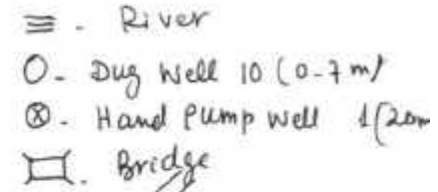 River
Dug Well 10 (0-7 m)
Hand Pump Well 1(20m
Bridge